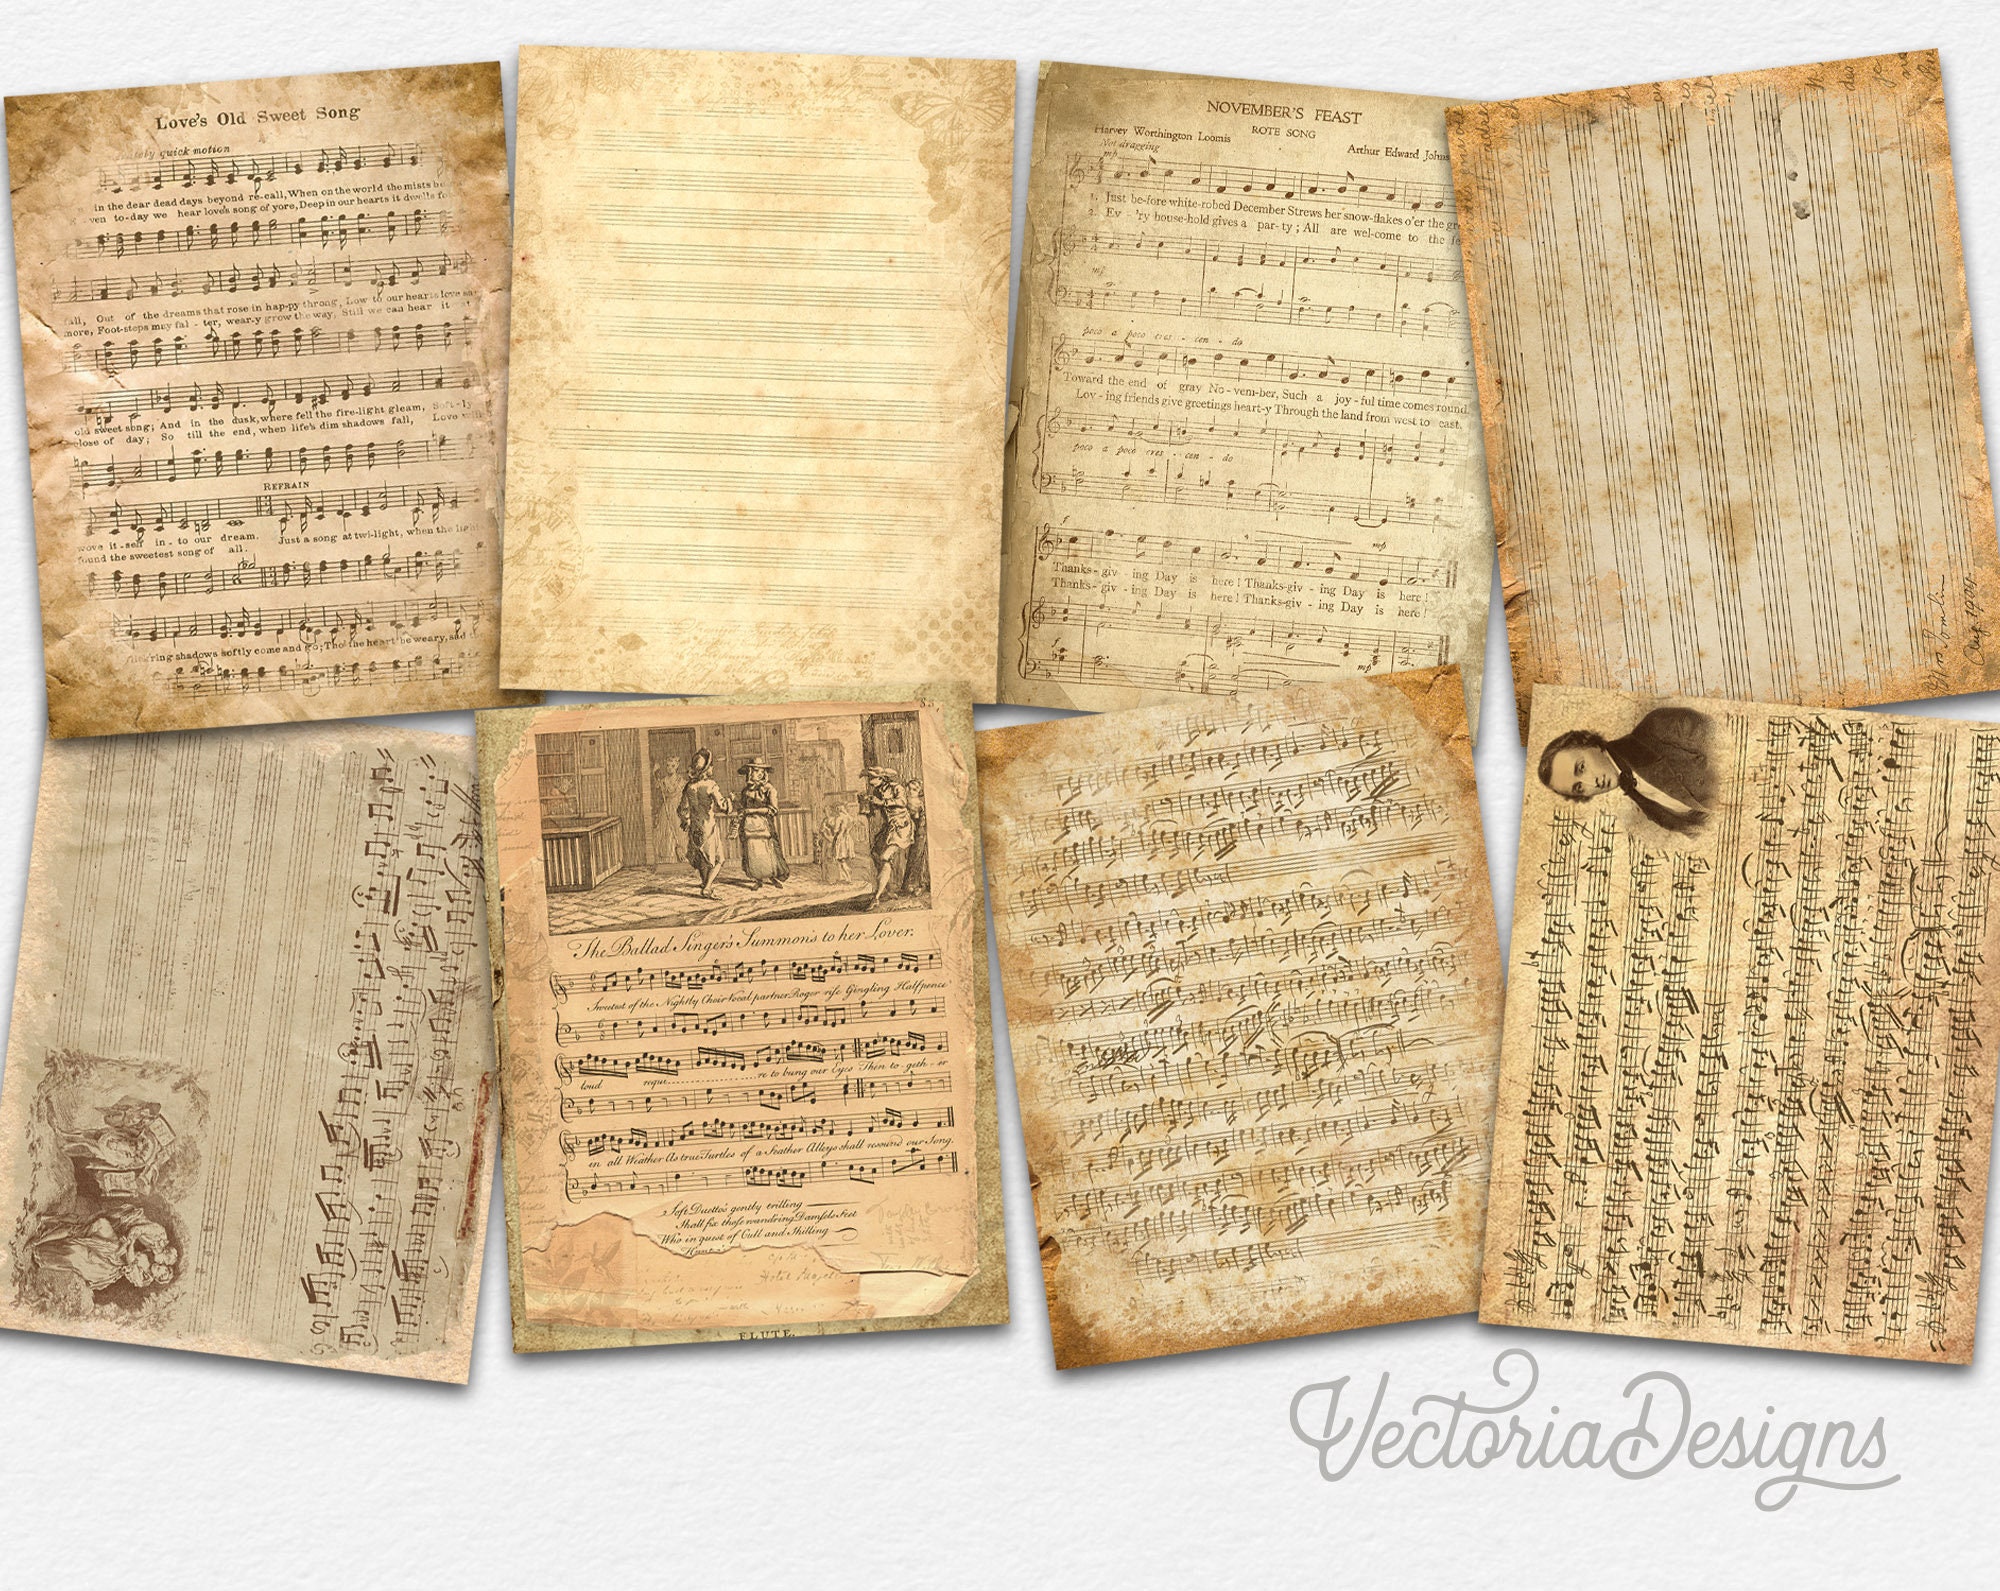 Love's Old Sweet Song
quick motion
in the dear dead days beyond re-call, When on the world the mists be
ven to-day we hear love's song of yore, Deep in our hearts it dwells fo
fall, Out of the dreams that rose in hap-py throng, Low to our hearts love sa
more, Foot-steps may fal - ter, wear-y grow the way, Still we can hear it at
old sweet song; And in the dusk, where fell the fire-light gleam, Soft-ly
close of day; So till the end, when life's dim shadows fall, Love will
REFRAIN
wove it-self in - to our dream. Just a song at twi-light, when the lights
found the sweetest song of all.
ring shadows softly come and go; Tho' the heart be weary, sad
NOVEMBER'S FEAST
ROTE SONG
Harvey Worthington Loomis
Arthur Edward Johns
Not dragging
mp
1. Just be-fore white-robed December Strews her snow-flakes o'er the gr
2. Ev - 'ry house-hold gives a par-ty; All are wel-come to the fe
mf
poco a poco cres - cen - do
Toward the end of gray No-vem-ber, Such a joy-ful time comes round
Lov-ing friends give greetings heart-y Through the land from west to east.
poco a poco cres - cen - do
f
mp
Thanks-giv - ing Day is here! Thanks-giv - ing Day is here!
Thanks-giv - ing Day is here! Thanks-giv - ing Day is here!
f
mp
Aug. 1904
83,
The Ballad Singer's Summons to her Lover.
Sweetest of the Nightly Choir Vocal partner Roger rise Gingling Halfpence
loud requi re to bung our Eyes Then to geth - er
in all Weather As true Turtles of a Feather Alleys shall resound our Song.
Soft Duetto's gently trilling
Shall fix those wandring Damsels Feet
Who in quest of Cull and Shilling
FLUTE.
VectoriaDesigns